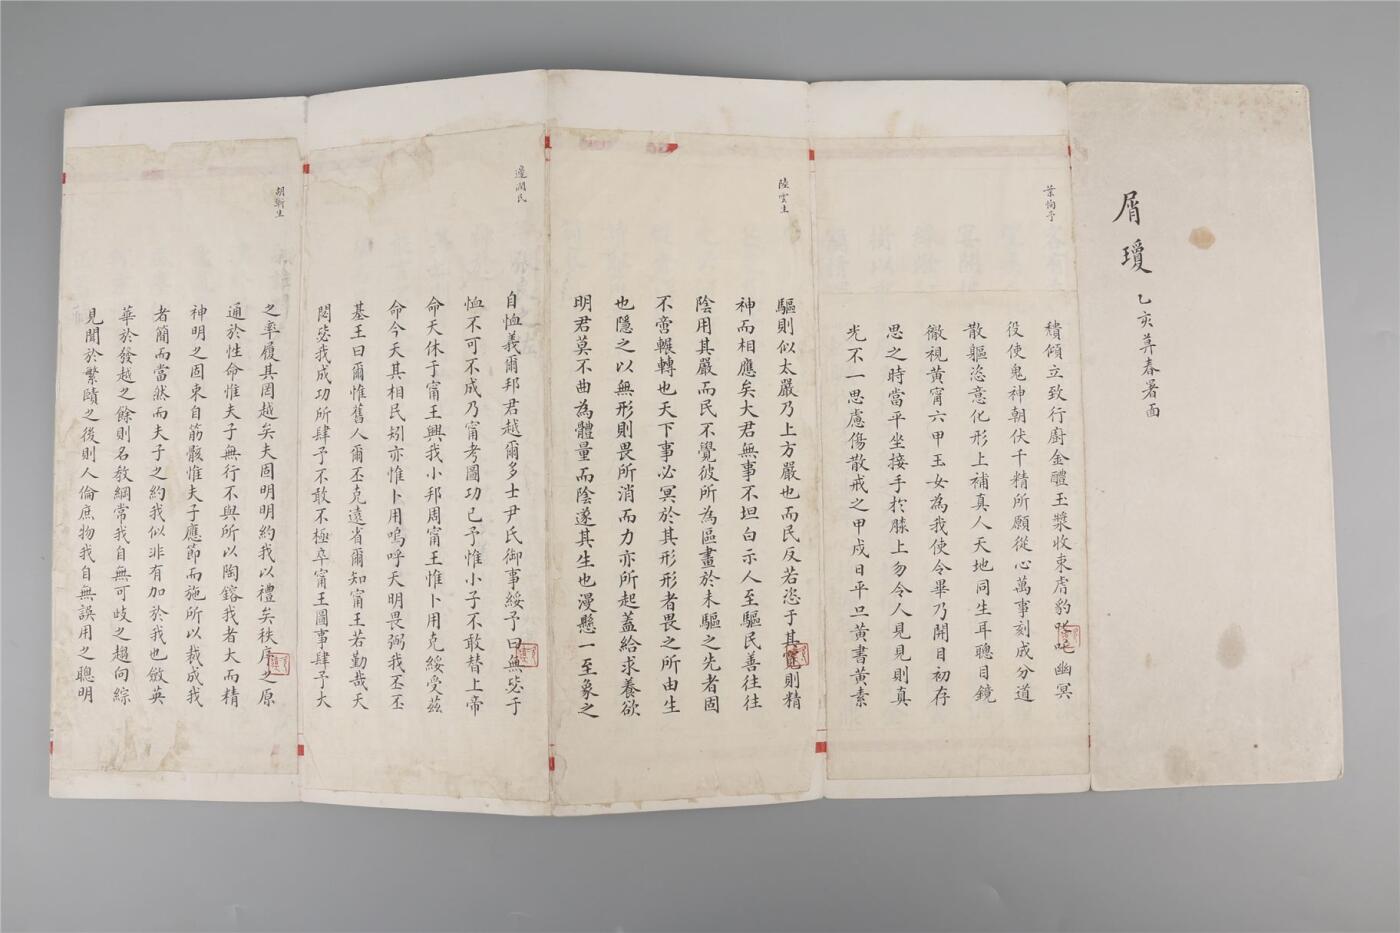 屑瓊
乙亥莫春署面
葉恂予
積傾立致行廚金醴玉漿收束虎豹呼吒幽冥
役使鬼神朝伏千精所願從心萬事刻成分道
散軀恣意化形上補真人天地同生耳聰目鏡
徹視黃甯六甲玉女為我使令畢乃開目初存
思之時當平坐接手於膝上勿令人見見則真
光不一思慮傷散戒之甲戌日平旦黃書黃素
陸雲生
驅則似太嚴乃上方嚴也而民反若恣于其寬則精
神而相應矣大君無事不坦白示人至驅民善往往
陰用其嚴而民不覺彼所為區畫於未驅之先者固
不啻輾轉也天下事必冥於其形形者畏之所由生
也隱之以無形則畏所消而力亦所起蓋給求養欲
明君莫不曲為體量而陰遂其生也漫懸一至象之
邊潤民
自恤義爾邦君越爾多士尹氏御事綏予曰無毖于
恤不可不成乃甯考圖功已予惟小子不敢替上帝
命天休于甯王興我小邦周甯王惟卜用克綏受茲
命今天其相民矧亦惟卜用嗚呼天明畏弼我丕丕
基王曰爾惟舊人爾丕克遠省爾知甯王若勤哉天
閟毖我成功所肆予不敢不極卒甯王圖事肆予大
胡斯生
之率履其罔越矣夫固明明約我以禮矣秩序之原
通於性命惟夫子無行不與所以陶鎔我者大而精
神明之固束自筋骸惟夫子應節而施所以裁成我
者簡而當然而夫子之約我似非有加於我也斂英
華於發越之餘則名教綱常我自無可歧之趨向綜
見聞於繁賾之後則人倫庶物我自無誤用之聰明